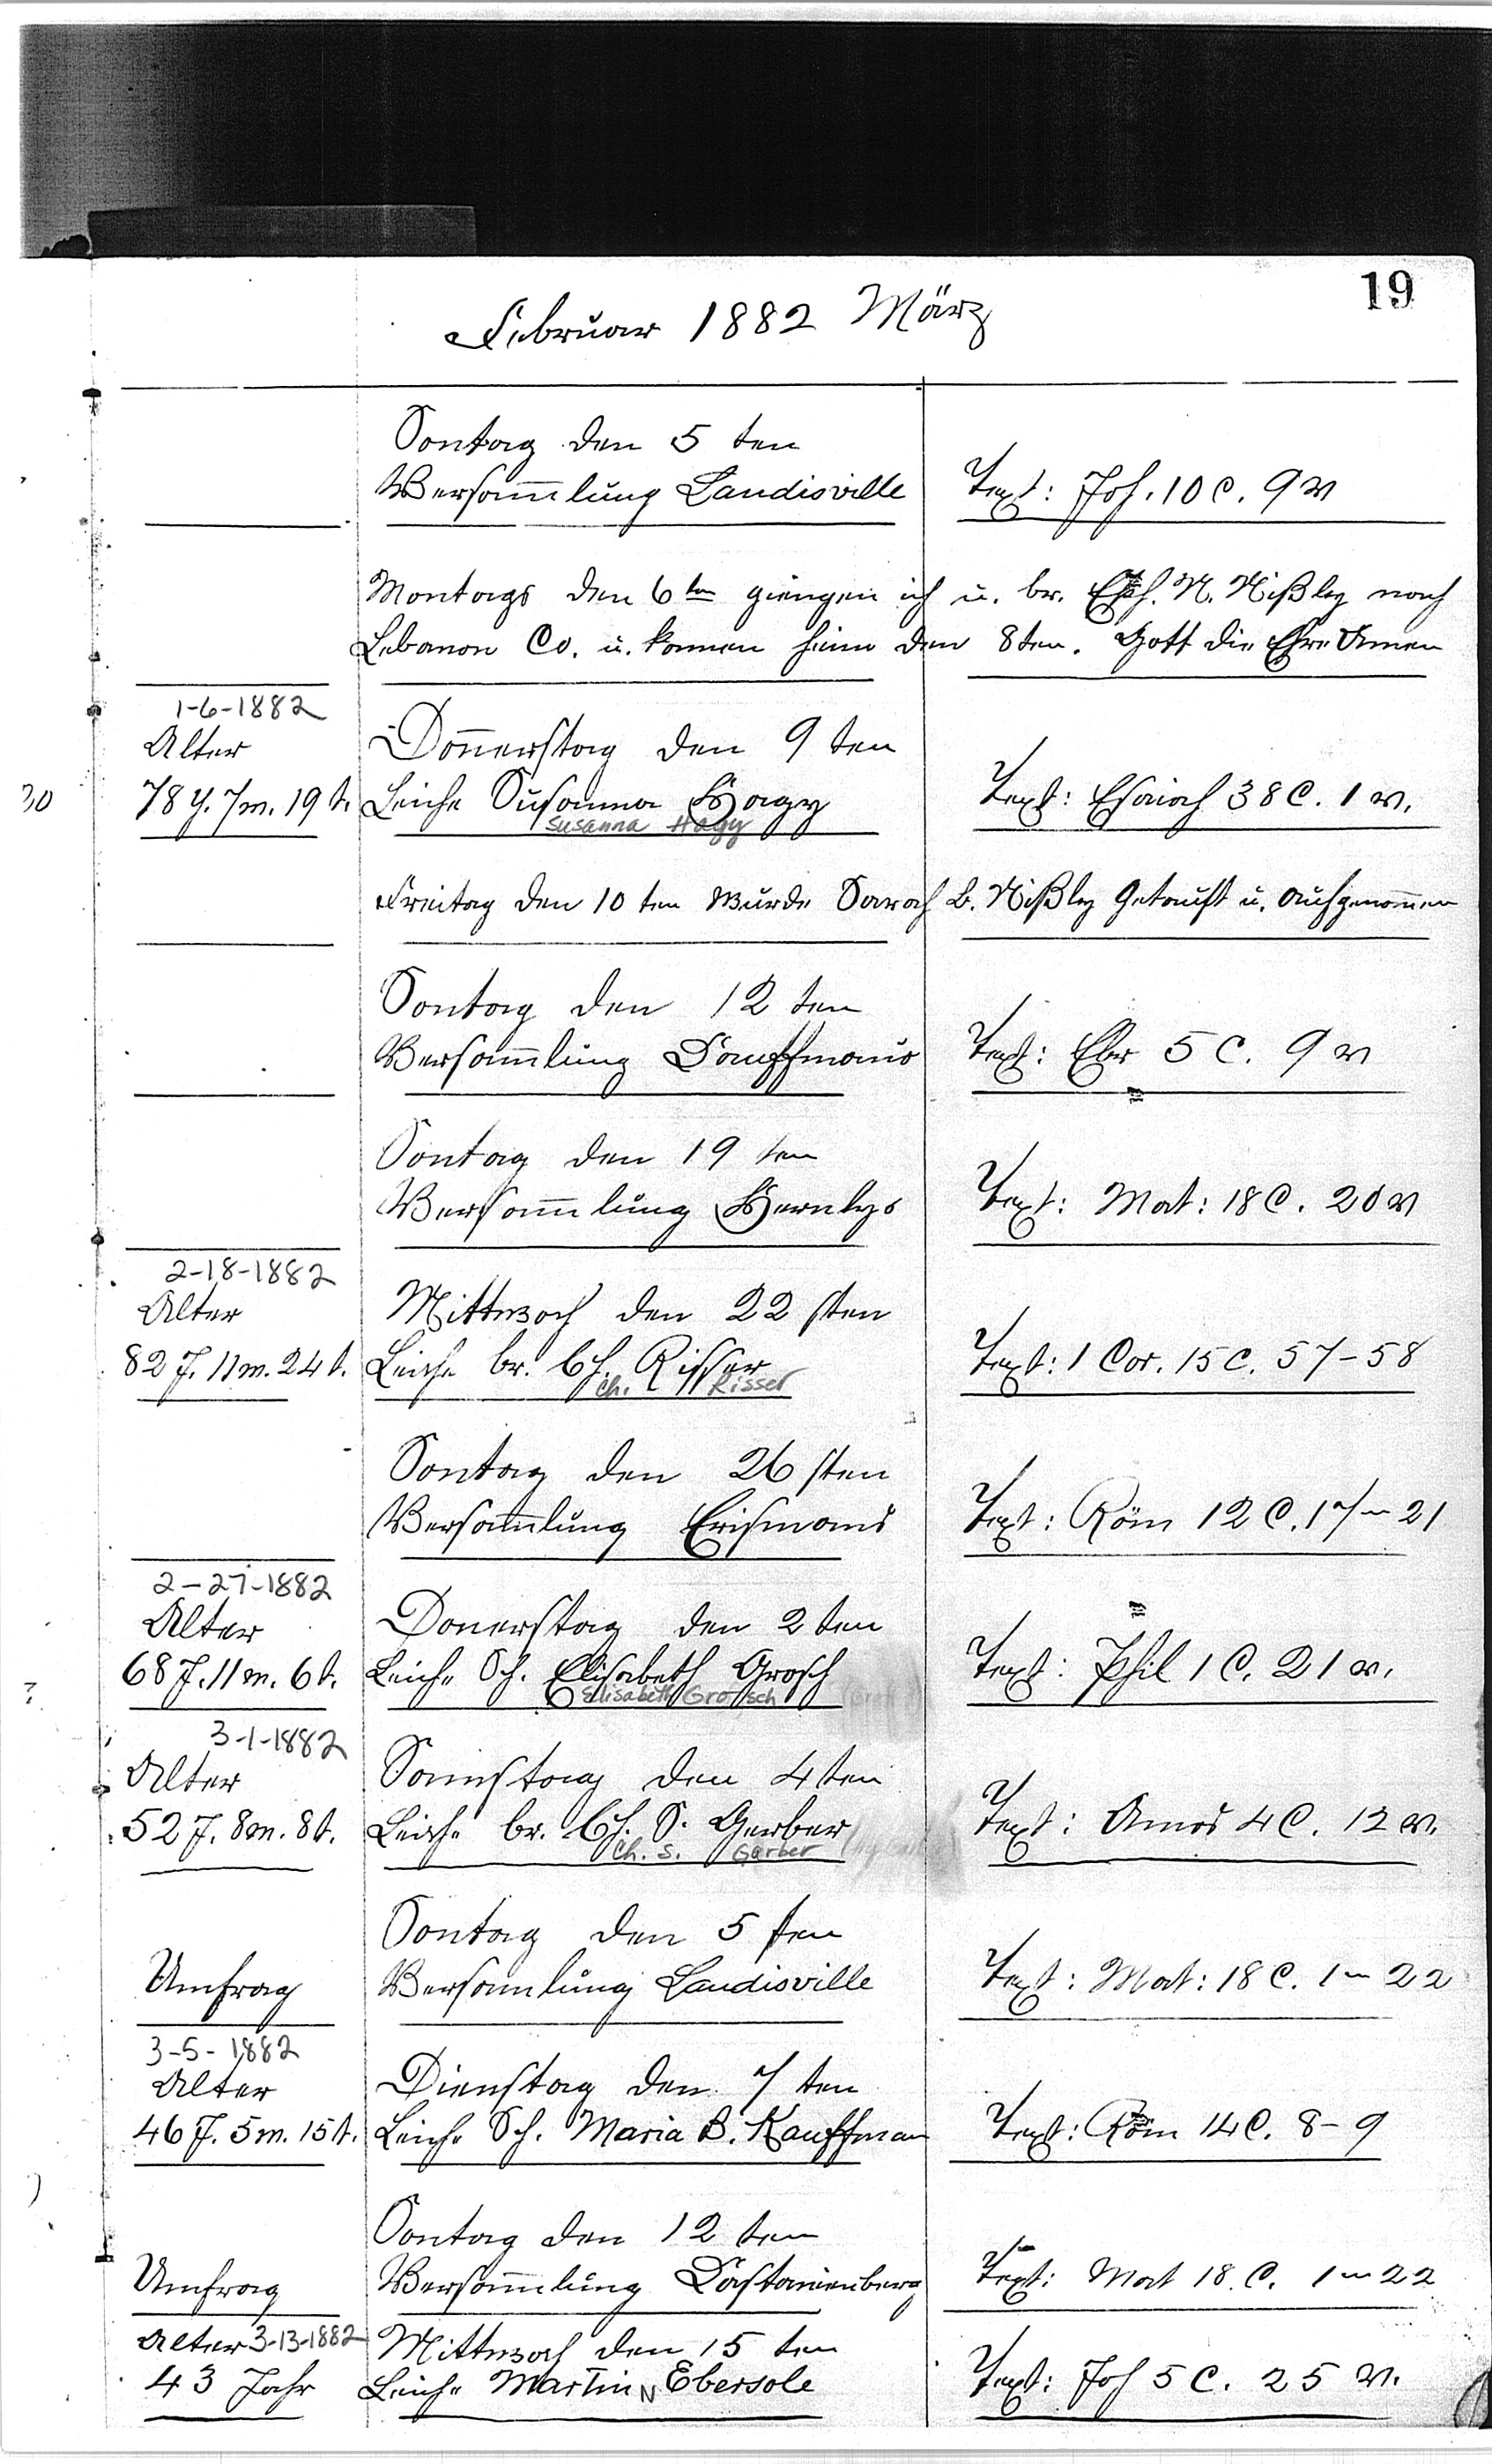 19
Februar 1882 März
Sontag den 5 ten
Versam̄lung Landisville Text: Joh. 10 C. 9 v
Montags den 6ten giengen ich u. br. Eph. N. Nißley nach
Lebanon Co. u. kamen heim den 8ten. Gott die Ehre Amen
1-6-1882
Alter Don̄erstag den 9 ten
78 y. 7m. 19 t. Leiche Susanna Hagy Text: Esaiah 38 C. 1 v.
Susanna Hagy
Freitag den 10 ten Wurde Sarah B. Nißley Getauft u. Aufgenom̄en
Sontag den 12 ten
Versam̄lung Kauffmans Text: Ebr 5 C. 9 v
Sontag den 19 ten
Versam̄lung Hernlys Text: Mat: 18 C. 20 v
2-18-1882
Alter Mittwoch den 22 sten
82 J. 11m. 24 t. Leiche br. Ch. Risser Text: 1 Cor. 15 C. 57-58
Ch. Risser
Sontag den 26 sten
Versam̄lung Erismans Text: Röm 12 C. 17-21
2-27-1882
Alter Donerstag den 2 ten
68 J. 11m. 6 t. Leiche Sch. Elisabeth Grosch Text: Phil 1 C. 21 v.
Elisabeth Grosch
3-1-1882
Alter Samstag den 4 ten
52 J. 8m. 8 t. Leiche br. Ch. S. Gerber Text: Amos 4 C. 12 v.
Ch. S. Garber
Sontag den 5 ten
Umfrag Versamlung Landisville Text: Mat: 18 C. 1-22
3-5-1882
Alter Dienstag den 7 ten
46 J. 5m. 15 t. Leiche Sch. Maria B. Kauffman Text: Röm 14 C. 8-9
Sontag den 12 ten
Umfrag Versam̄lung Kastanienberg Text: Mat 18. C. 1-22
Alter 3-13-1882 Mittwoch den 15 ten
43 Jahr Leiche Martin N Ebersole Text: Joh 5 C. 25 v.